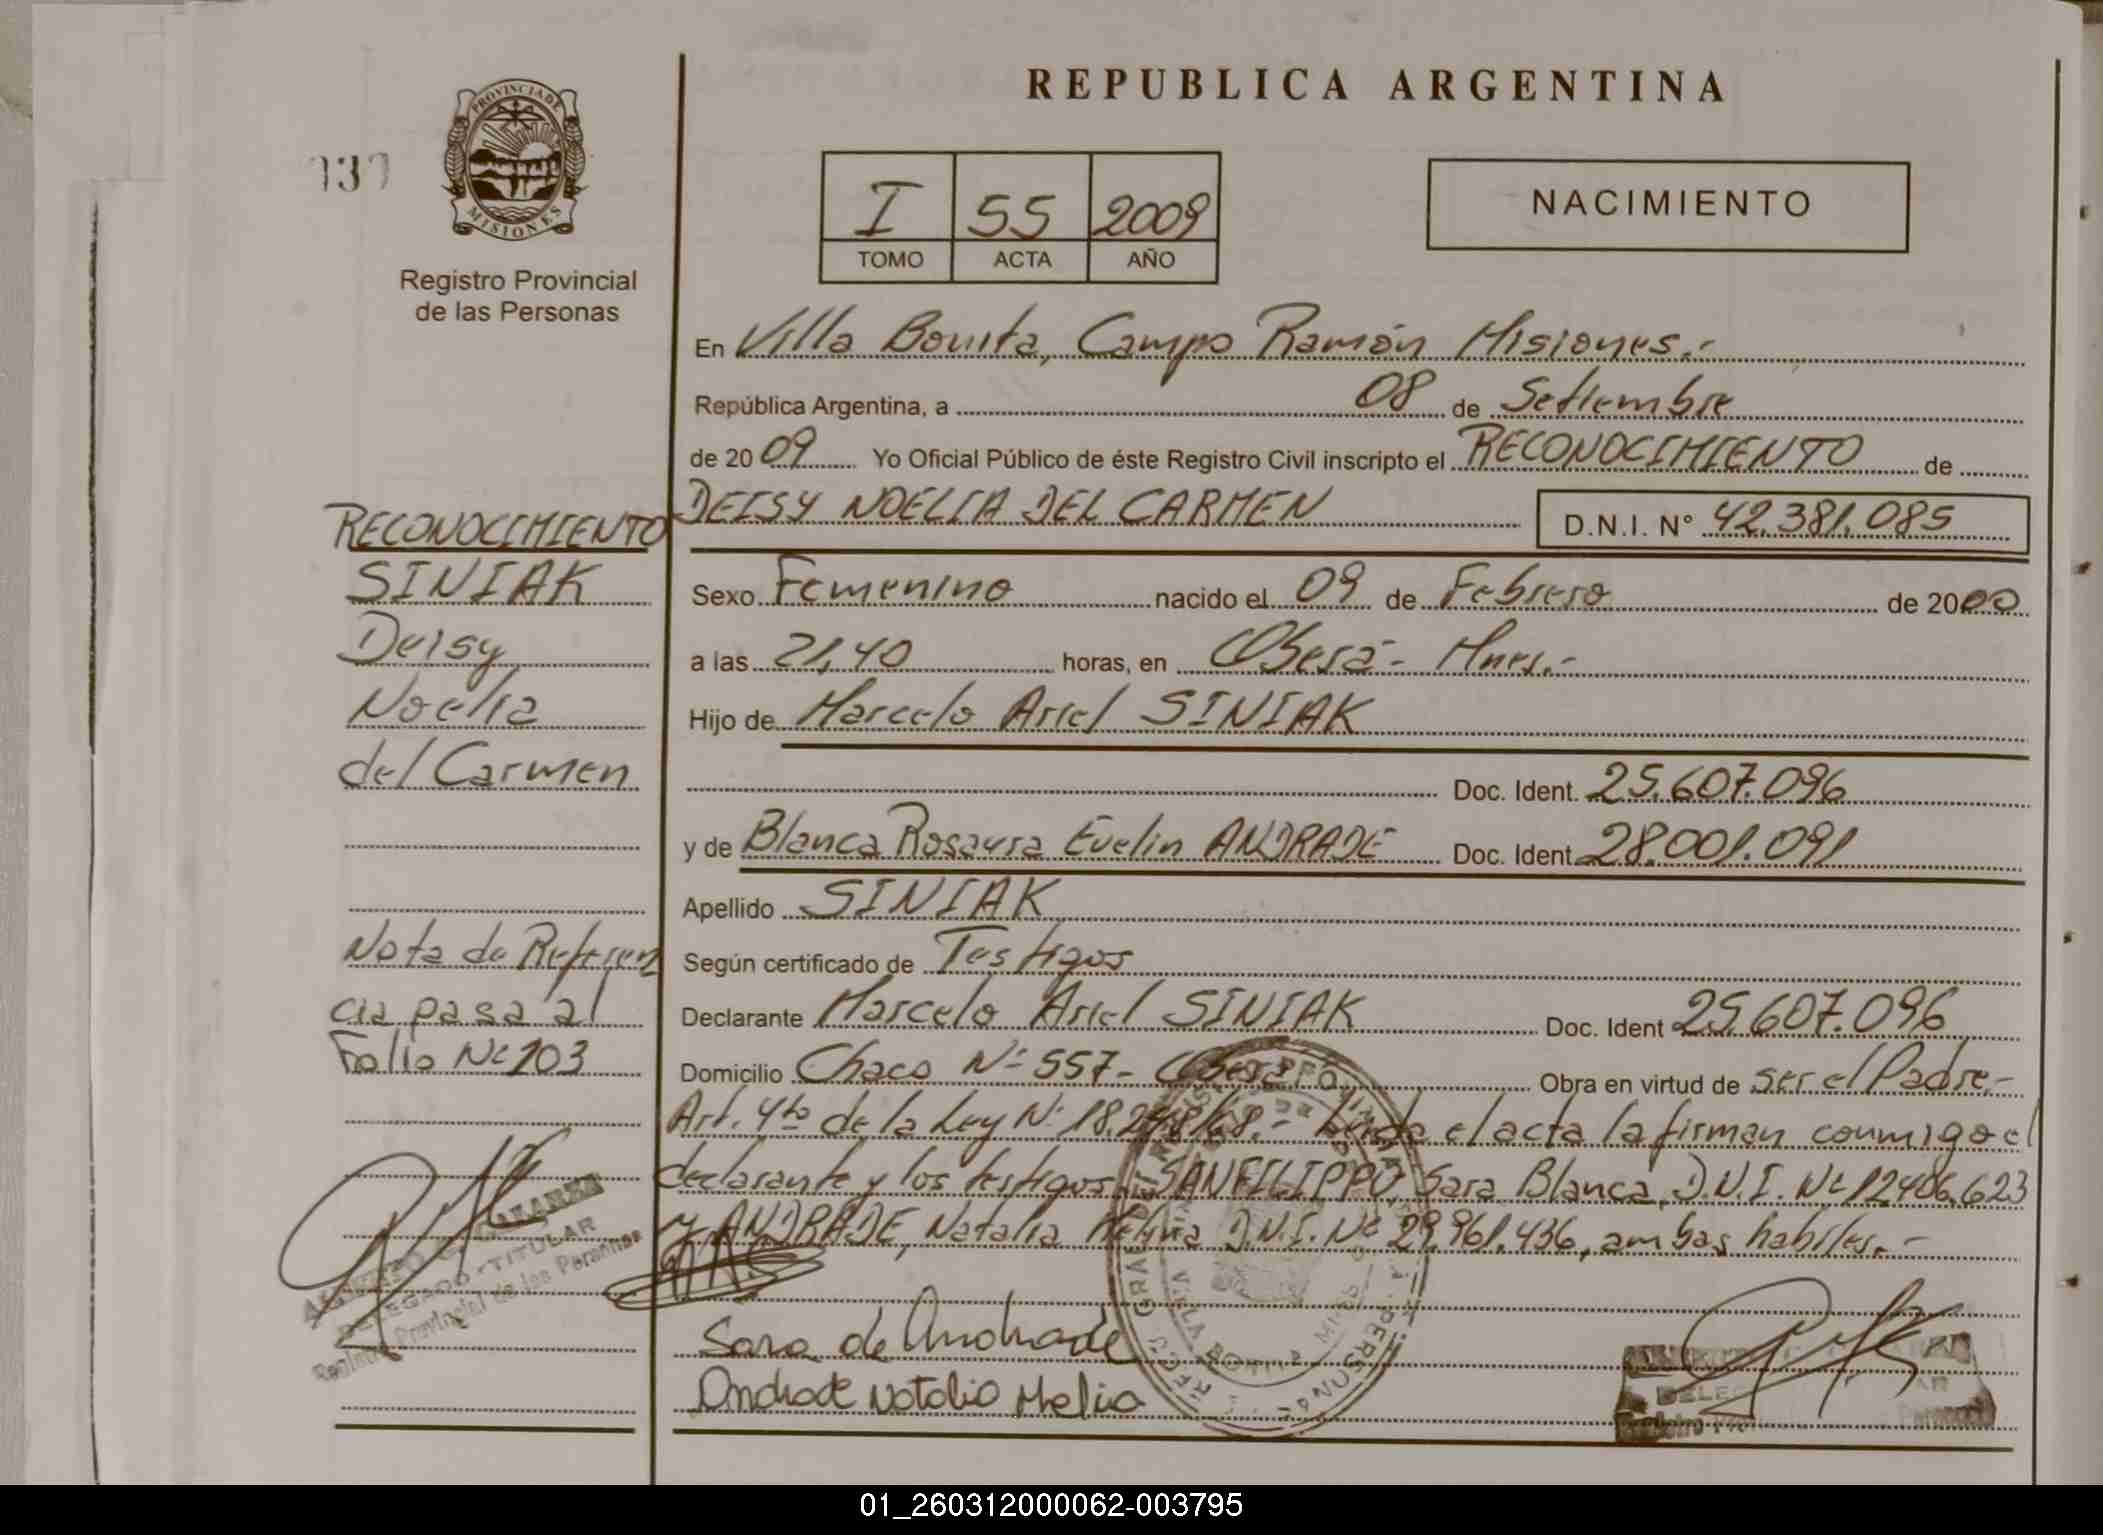 REPUBLICA ARGENTINA
PROVINCIA DE
MISIONES
Registro Provincial
de las Personas
I 55 2009
TOMO ACTA AÑO
NACIMIENTO
En Villa Bonita, Campo Ramón Misiones.-
República Argentina, a 08 de Setiembre
de 2009 Yo Oficial Público de éste Registro Civil inscripto el RECONOCIMIENTO de
DEISY NOELIA DEL CARMEN D.N.I. N° 42.381.085
Sexo Femenino nacido el 09 de Febrero de 2000
a las 21,40 horas, en Oberá - Mnes.-
Hijo de Marcelo Ariel SINIAK
Doc. Ident. 25.607.096
y de Blanca Rosaura Evelin ANDRADE Doc. Ident 28.001.091
Apellido SINIAK
Según certificado de Testigos
Declarante Marcelo Ariel SINIAK Doc. Ident 25.607.096
Domicilio Chaco N° 557 - Oberá Obra en virtud de ser el Padre.-
Art. 4to de la Ley N° 18.248/68.- Leída el acta la firman conmigo el
declarante y los testigos SANFILIPPO, Sara Blanca, D.N.I. N° 12.406.623
y ANDRADE, Natalia D.N.I. N° 29.961.436, ambas habiles.-
Sara de Andrade
Andrade Natalia Melia
RECONOCIMIENTO
SINIAK
Deisy
Noelia
del Carmen
Nota de Referen
cia pasa al
Folio N° 103
DELEGADO - TITULAR
Registro Provincial de las Personas
01_260312000062-003795